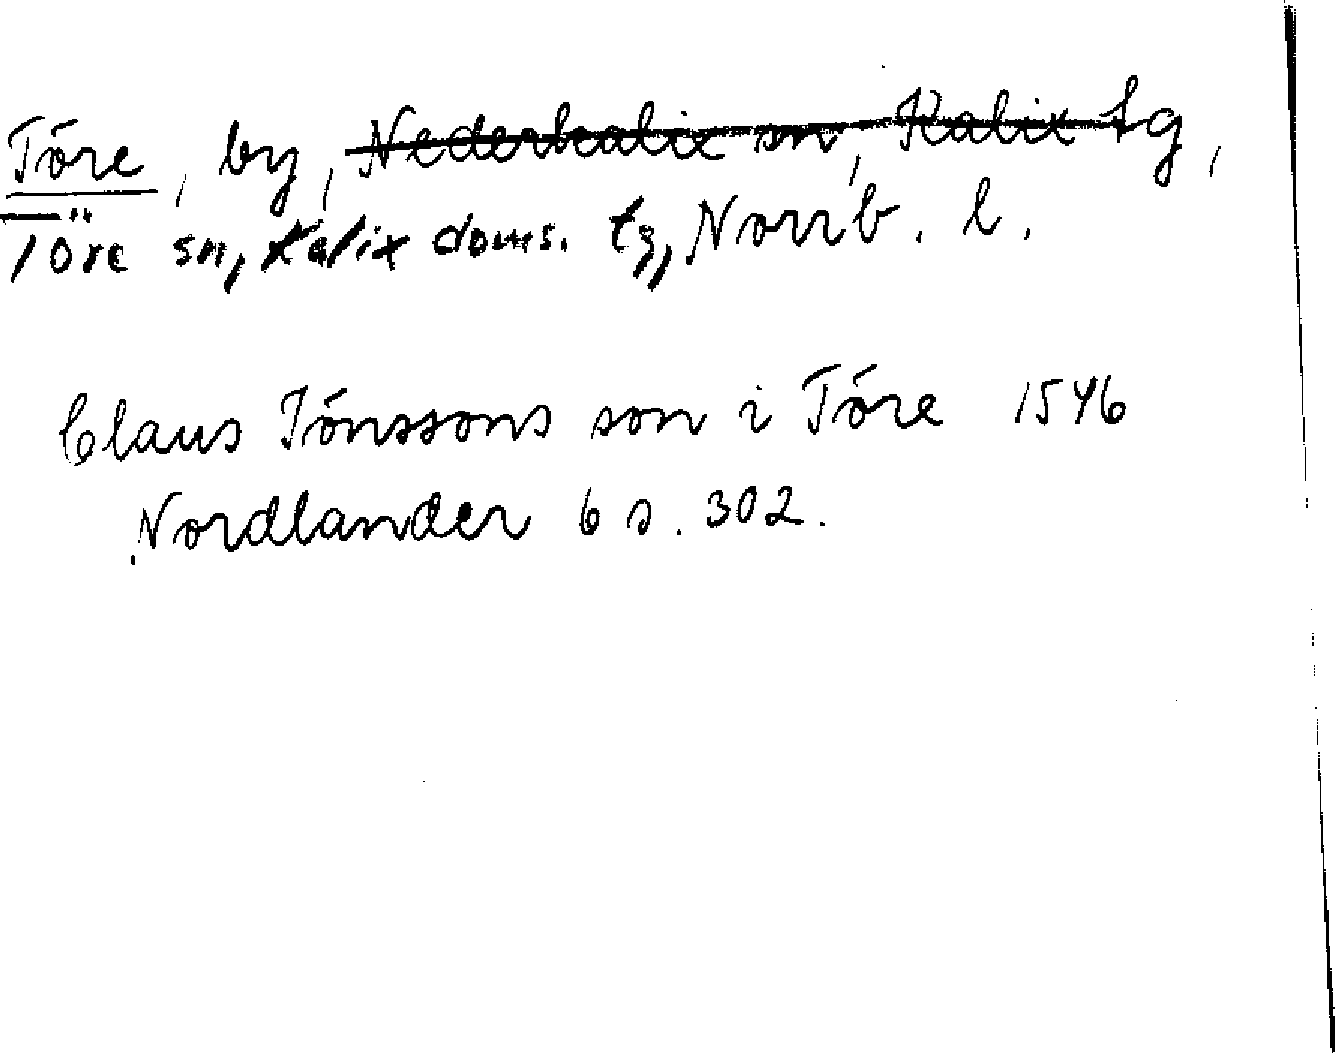 Töre, by, Nederkalix sn, Kalix tg,
Töre sn, Kalix doms. tg, Norrb. l.
Claus Jönssons son i Töre 1546
Nordlander 6 s. 302.